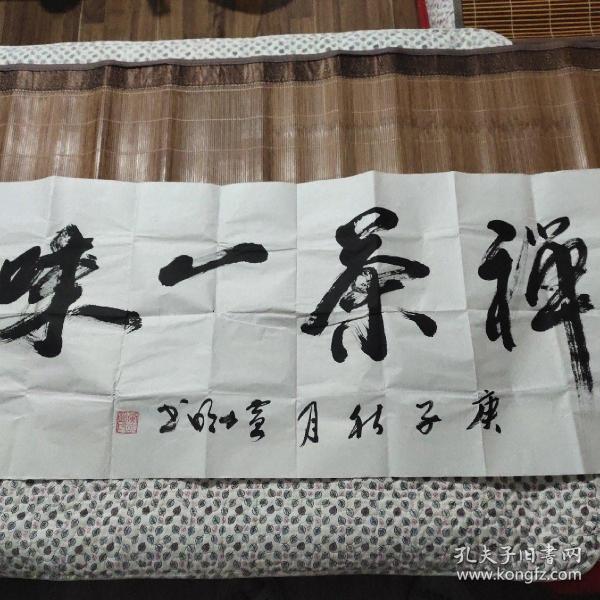 禅茶一味
庚子秋月黄小明书
孔夫子旧书网
www.kongfz.com